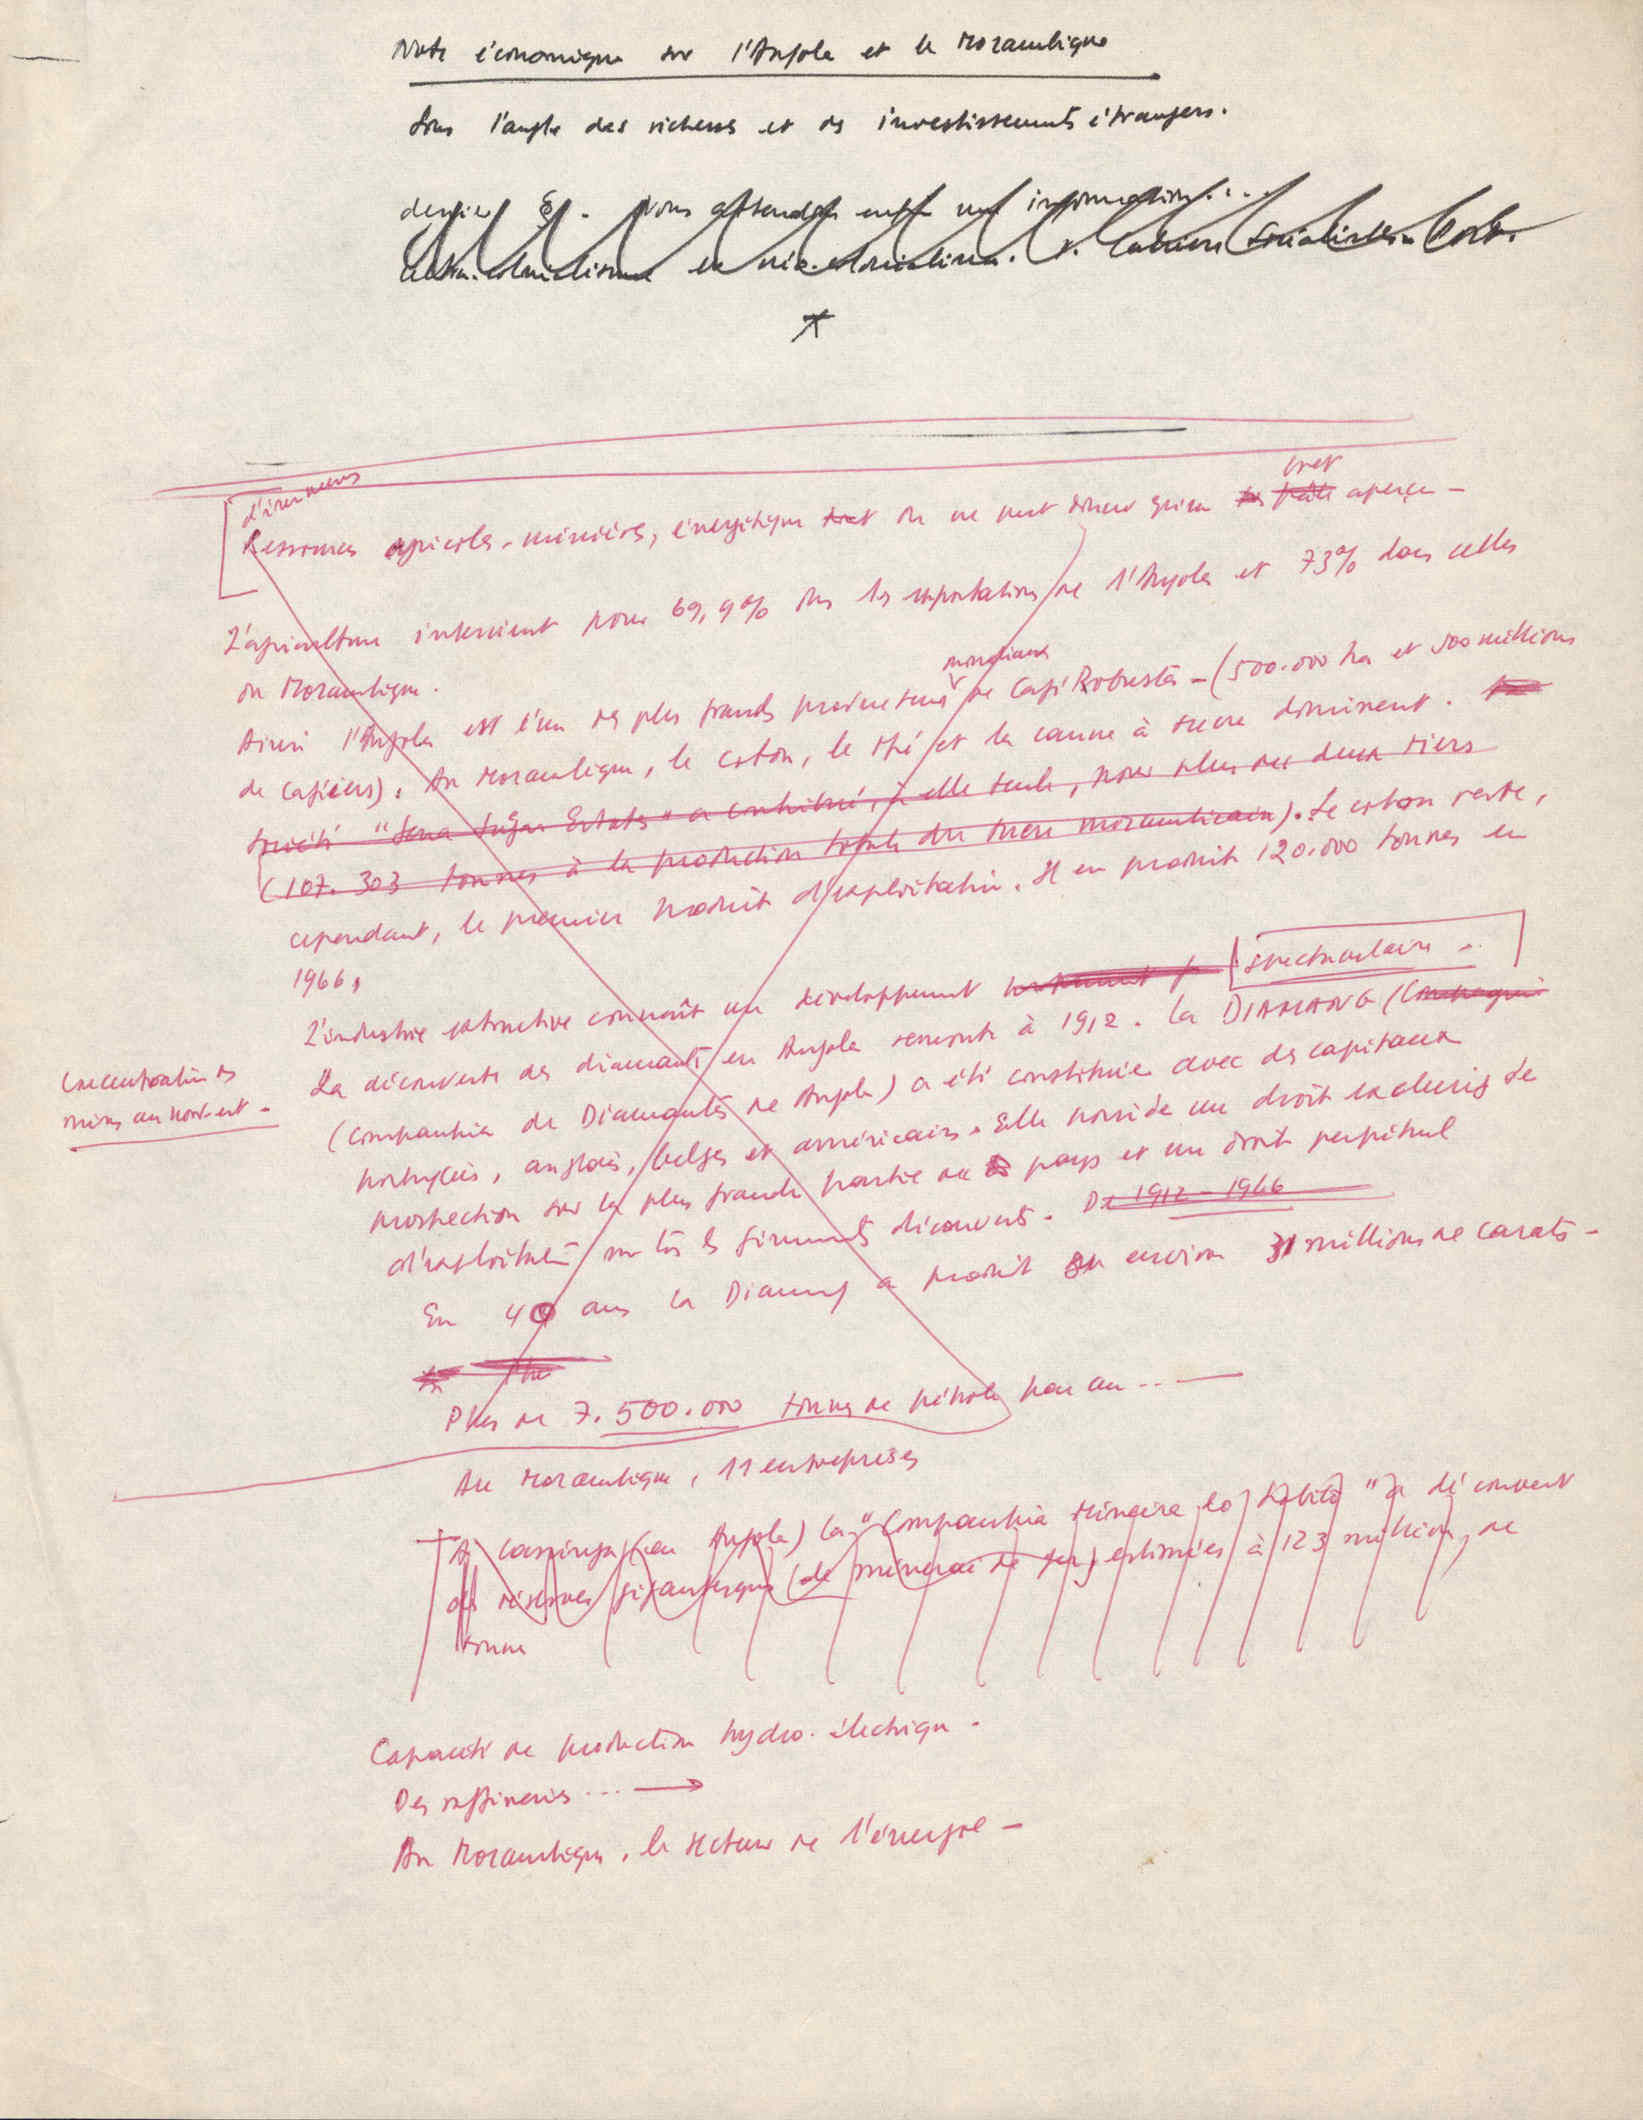 Note économique sur l'Angola et le Mozambique
Sous l'angle des richesses et des investissements étrangers.
dernier §. Nous attendons enfin une information...
et néo-colonialisme. Cahiers Socialistes
d'énormes
bref
Ressources agricoles, minières, énergétiques on ne peut donner qu'un aperçu -
L'agriculture intervient pour 69,9% dans les exportations de l'Angola et 73% dans celles
du Mozambique.
mondiaux
Ainsi l'Angola est l'un des plus grands producteurs de Café Robusta - (500.000 ha et 500 millions
de caféiers). Au Mozambique, le coton, le thé et la canne à sucre dominent. La
Société "Sena Sugar Estates" a contribué, à elle seule, pour plus des deux tiers
(107.303 tonnes à la production totale du sucre mozambicain). Le coton reste,
cependant, le premier produit d'exploitation. Il en produit 120.000 tonnes en
1966.
L'industrie extractive connaît un développement spectaculaire -
La découverte des diamants en Angola remonte à 1912. La DIAMANG (Compagnie
Concentration des
mines au nord-est -
(Companhia de Diamantes de Angola) a été constituée avec des capitaux
portugais, anglais, belges et américains. Elle possède un droit exclusif de
prospection sur la plus grande partie du pays et un droit perpétuel
d'exploitation sur tous les gisements découverts. De 1912 - 1966
En 40 ans la Diamang a produit environ 31 millions de carats -
Plus de 7.500.000 tonnes de pétrole par an... —
Au Mozambique, 11 entreprises
A Cassinga (en Angola) la "Companhia Mineira do Lobito" a découvert
des réserves gigantesques (de minerai de fer) estimées à 123 millions de
tonnes
Capacité de production hydro-électrique -
Des raffineries ... →
Au Mozambique, le secteur de l'énergie -